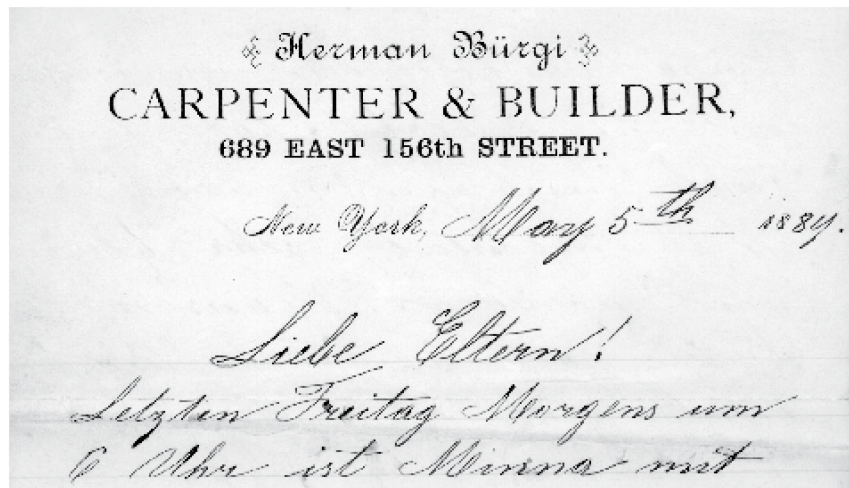 Herman Bürgi
CARPENTER & BUILDER,
689 EAST 156th STREET.
New York, May 5th 1889.
Liebe Eltern!
Letzten Freitag Morgens um
6 Uhr ist Minna mit